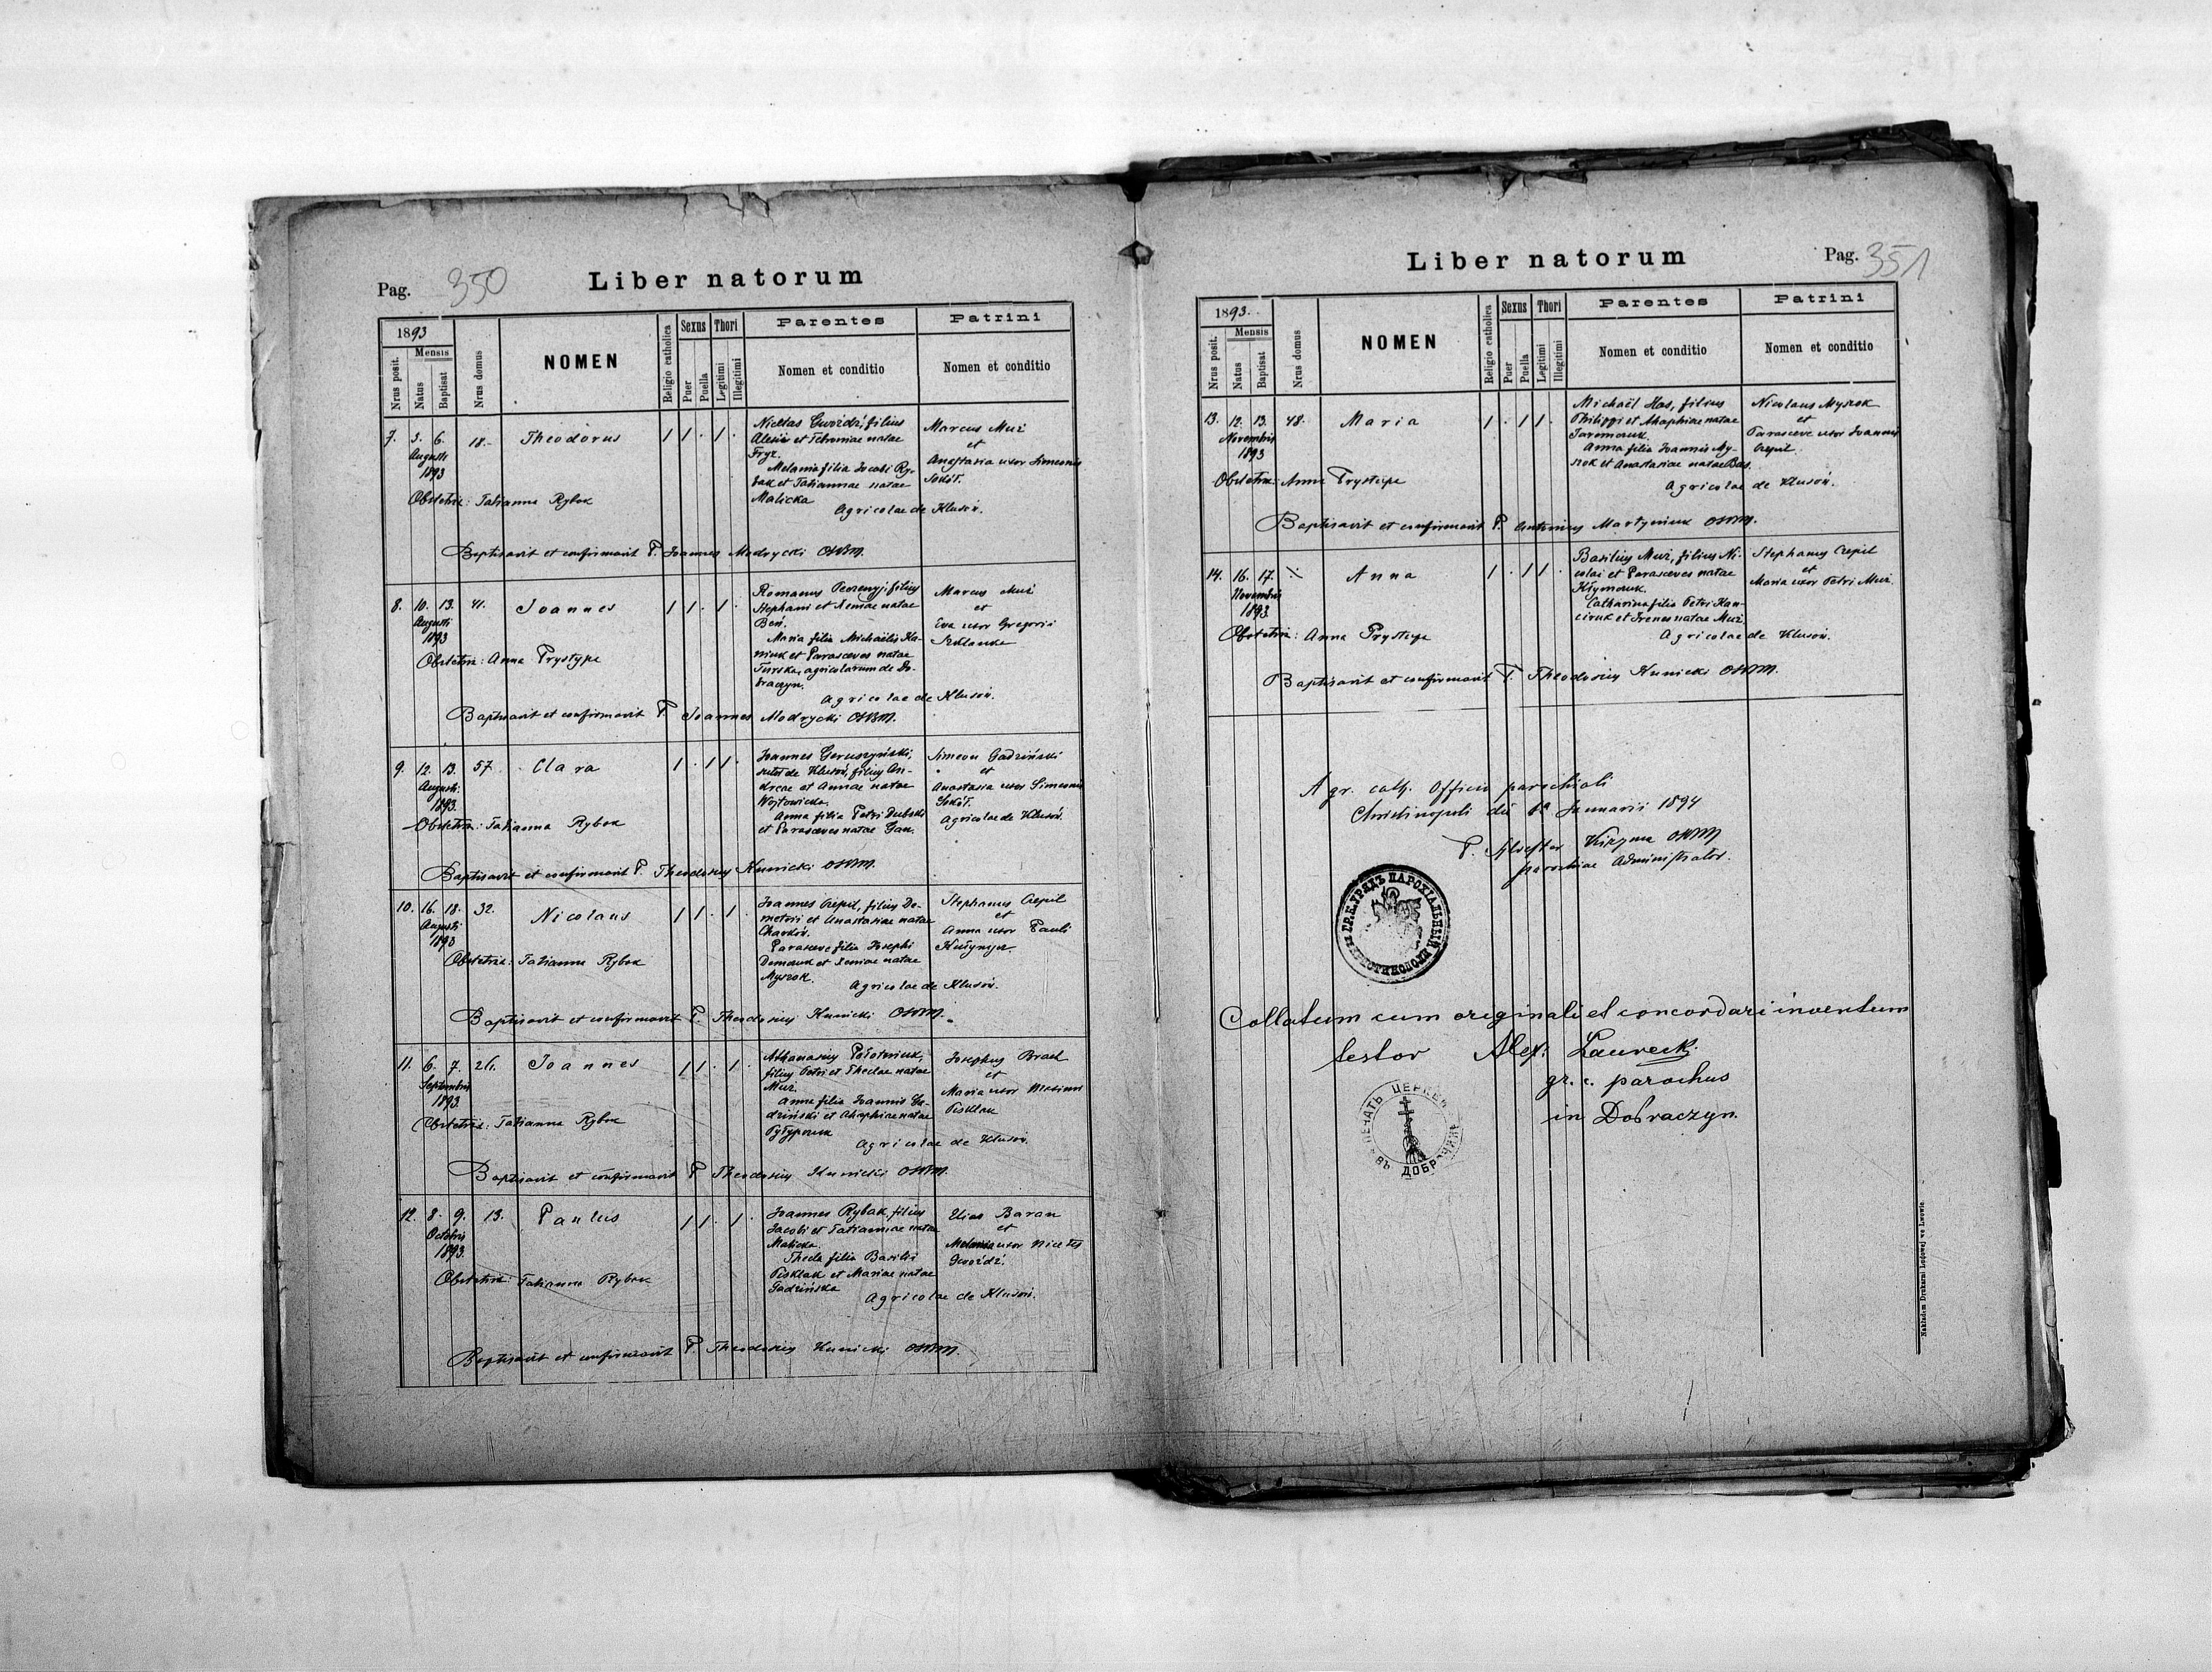 Pag. 350
Liber natorum
1893
Nrus posit.
Mensis
Natus
Baptisat
Nrus domus
NOMEN
Religio catholica
Sexus
Puer
Puella
Thori
Legitimi
Illegitimi
Parentes
Nomen et conditio
Patrini
Nomen et conditio
7. 5. 6. 18. Theodorus 1 1 . 1 .
Augusti
1893
Obstetrix: Tatianna Rybak
Nicetas Gwóźdź, filius
Alexii et Febroniae natae
Fryz.
Melania filia Jacobi Ry-
bak et Tatiannae natae
Malicka
Agricolae de Klusów.
Marcus Muż
et
Anastasia uxor Simeonis
Sokół.
Baptisavit et confirmavit P. Joannes Modrycki OSBM.
8. 10. 13. 41. Joannes 1 1 . 1 .
Augusti
1893
Obstetrix: Anna Prystupa
Romanus Peczenyj, filius
Stephani et Xeniae natae
Ben.
Maria filia Michaelis Ka-
niuk et Parasceves natae
Turska, agricolarum de Do-
braczyn.
Agricolae de Klusów.
Marcus Muż
et
Eva uxor Gregorii
Baptisavit et confirmavit P. Joannes Modrycki OSBM.
9. 12. 13. 57. Clara 1 . 1 1 .
Augusti
1893.
Obstetrix: Tatianna Rybak
Joannes Geruszyński,
sutor de Klusów, filius An-
dreae et Annae natae
Wojtowicka.
Anna filia Petri Dubski
et Parasceves natae Gau.
Simeon Gadziński
et
Anastasia uxor Simeonis
Sokół.
Agricolae de Klusów.
Baptisavit et confirmavit P. Theodosius Kunicki OSBM.
10. 16. 18. 32. Nicolaus 1 1 . 1 .
Augusti
1893
Obstetrix: Tatianna Rybak
Joannes Czepil, filius De-
metrii et Anastasiae natae
Charków.
Parasceve filia Josephi
Demczuk et Xeniae natae
Myszok.
Agricolae de Klusów.
Stephanus Czepil
et
Anna uxor Pauli
Baptisavit et confirmavit P. Theodosius Kunicki OSBM.
11. 6. 7. 26. Joannes 1 1 . 1 .
Septembris
1893.
Obstetrix: Tatianna Rybak
Athanasius Połotniuk,
filius Petri et Theclae natae
Muż.
Anna filia Joannis Ga-
dziński et Ahaphiae natae
Pyłypczuk
Agricolae de Klusów.
Josephus Brach
et
Maria uxor Maximi
Pisklak
Baptisavit et confirmavit P. Theodosius Kunicki OSBM.
12. 8. 9. 13. Paulus 1 1 . 1 .
Octobris
1893
Obstetrix: Tatianna Rybak
Joannes Rybak, filius
Jacobi et Tatiannae natae
Malicka.
Thecla filia Basilii
Pisklak et Mariae natae
Gadzińska
Agricolae de Klusów.
Elias Baran
et
Melania uxor Nicetas
Gwóźdź.
Baptisavit et confirmavit P. Theodosius Kunicki OSBM.
Liber natorum
Pag. 351
1893.
Nrus posit.
Mensis
Natus
Baptisat
Nrus domus
NOMEN
Religio catholica
Sexus
Puer
Puella
Thori
Legitimi
Illegitimi
Parentes
Nomen et conditio
Patrini
Nomen et conditio
13. 12. 13. 48. Maria 1 . 1 1 .
Novembris
1893
Obstetrix: Anna Prystupa
Michaël Has, filius
Philippi et Ahaphiae natae
Jaremczuk.
Anna filia Joannis My-
szok et Anastasiae natae Bas.
Agricolae de Klusów.
Nicolaus Myszok
et
Parasceve uxor Joannis
Czepil.
Baptisavit et confirmavit P. Antonius Martyniuk OSBM.
14. 16. 17. Anna 1 . 1 1 .
Novembris
1893.
Obstetrix: Anna Prystupa
Basilius Muż, filius Ni-
colai et Parasceves natae
Kłymczuk.
Catharina filia Petri Han-
ciruk et Irenes natae Muż.
Agricolae de Klusów.
Stephanus Czepil
et
Maria uxor Petri Muż.
Baptisavit et confirmavit P. Theodosius Kunicki OSBM.
A gr. cath. Officio parochiali
Christinopoli die 6a Januarii 1894
P. Silvester Kizyma OSBM
parochiae Administrator.
ГР.К.УРЯДЪ ПАРОХІАЛЬНЫЙ
Collatum cum originali et concordari inventum
testor Alex: Laureck.
gr. c. parochus
in Dobraczyn.
ПЕЧАТЬ ЦЕРКВИ
ВЪ ДОБРАЧИНѢ
Nakładem Drukarni Ludowej we Lwowie.